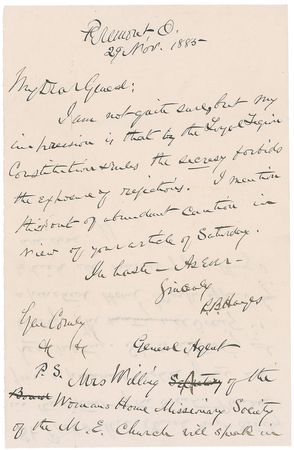 Fremont O.
29 Nov. 1885
My Dear General:
I am not quite sure, but my
impression is that by the Loyal Legion
Constitution & rules the secresy forbids
the exposure of rejections. I mention
this out of abundant caution in
view of your article of Saturday.
In haste — As Ever —
Sincerely
R B Hayes
Gen Comly
&c &c
General Agent
P.S. Mrs Willing of the
Board Womans Home Missionary Society
of the M. E. Church will speak in